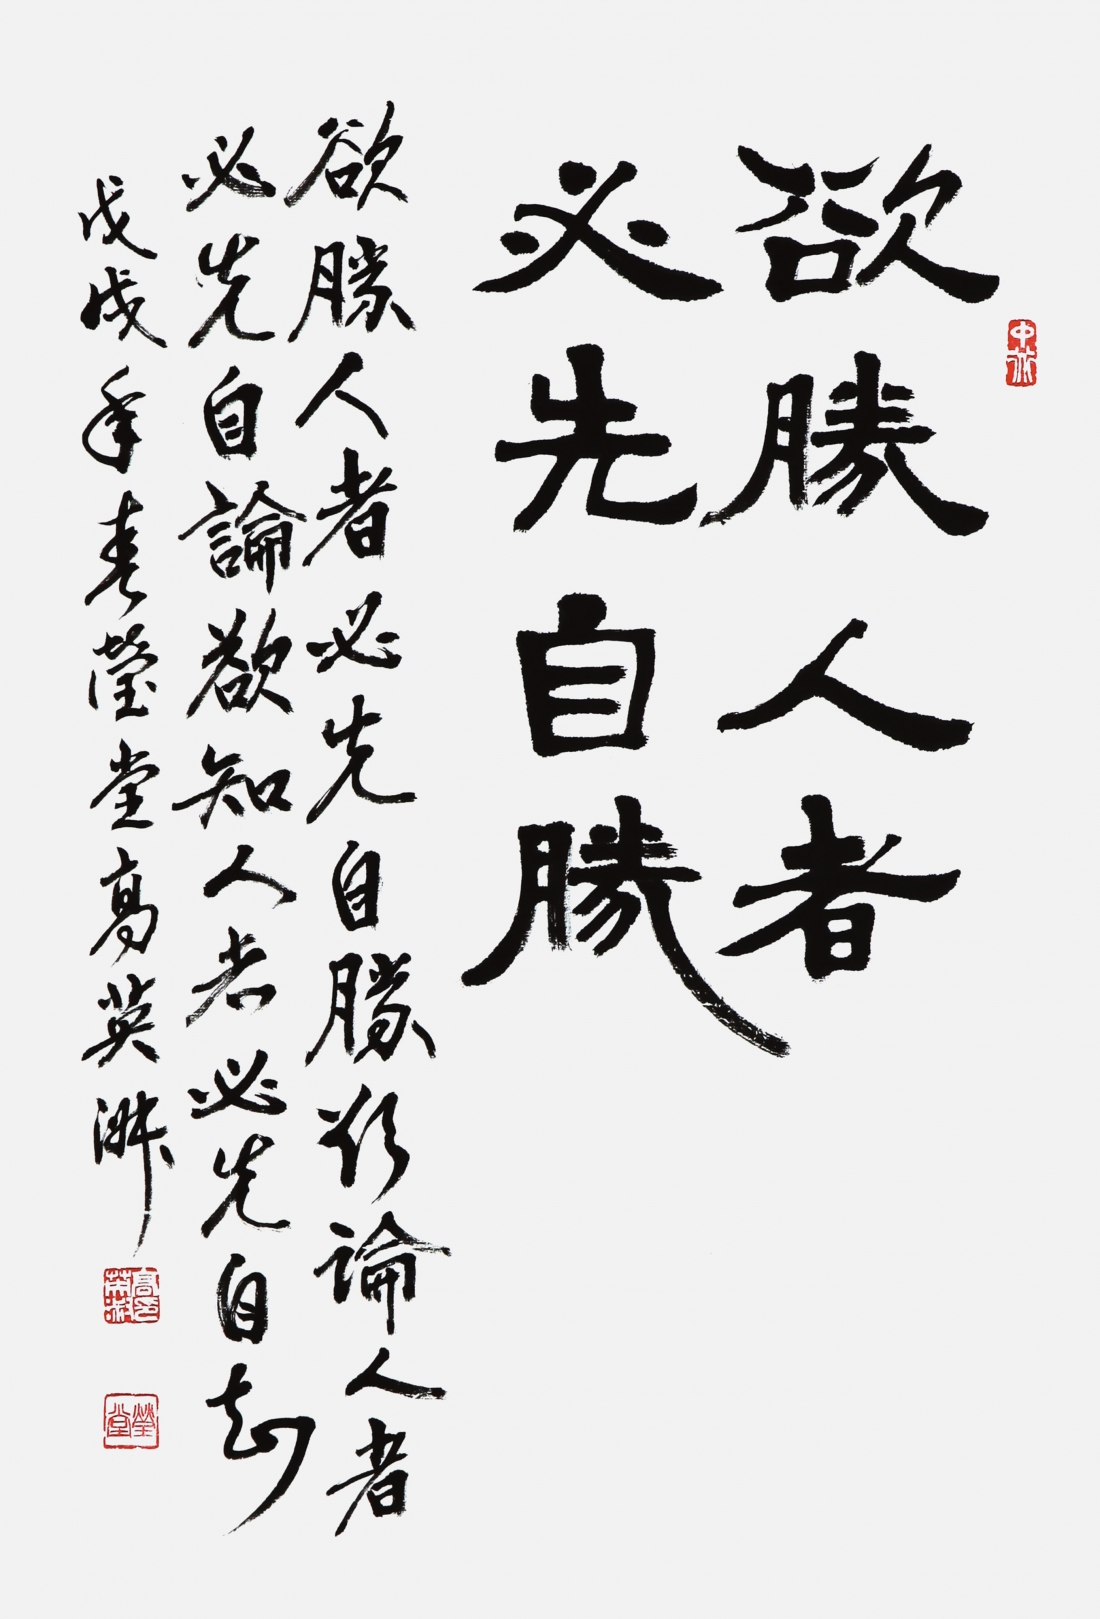 欲勝人者
必先自勝
欲勝人者必先自勝欲論人者
必先自論欲知人者必先自知
戊戌年春瑩堂高英淋